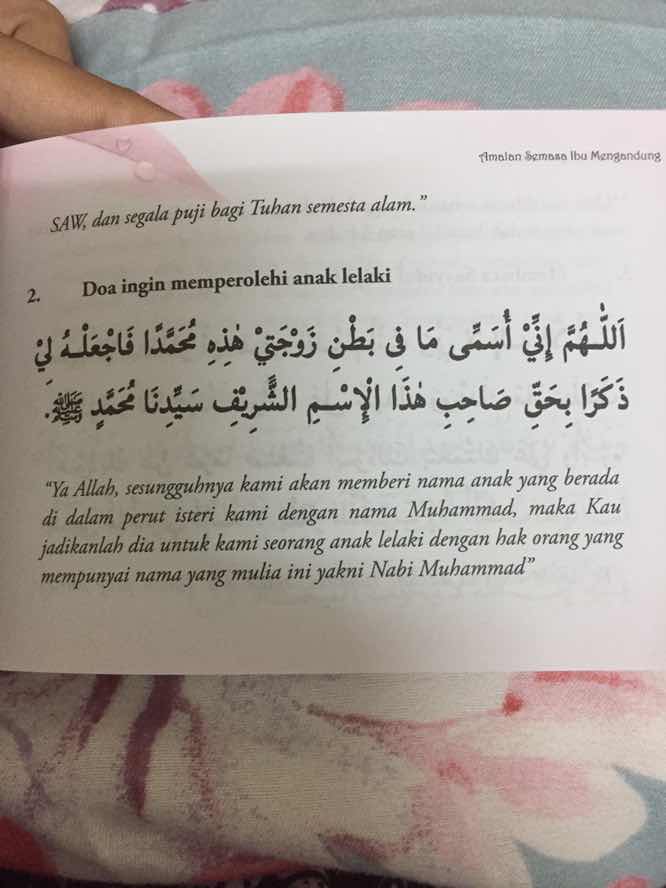 Amalan Semasa Ibu Mengandung
SAW, dan segala puji bagi Tuhan semesta alam.”
2. Doa ingin memperolehi anak lelaki
اَللّٰـهُمَّ إِنِّيْ أُسَمِّى مَا فِى بَطْنِ زَوْجَتِيْ هٰذِهِ مُحَمَّدًا فَاجْعَلْـهُ لِيْ
ذَكَرًا بِحَقِّ صَاحِبِ هٰذَا الْإِسْـمِ الشَّرِيْفِ سَيِّدِنَا مُحَمَّدٍ ﷺ.
“Ya Allah, sesungguhnya kami akan memberi nama anak yang berada
di dalam perut isteri kami dengan nama Muhammad, maka Kau
jadikanlah dia untuk kami seorang anak lelaki dengan hak orang yang
mempunyai nama yang mulia ini yakni Nabi Muhammad”